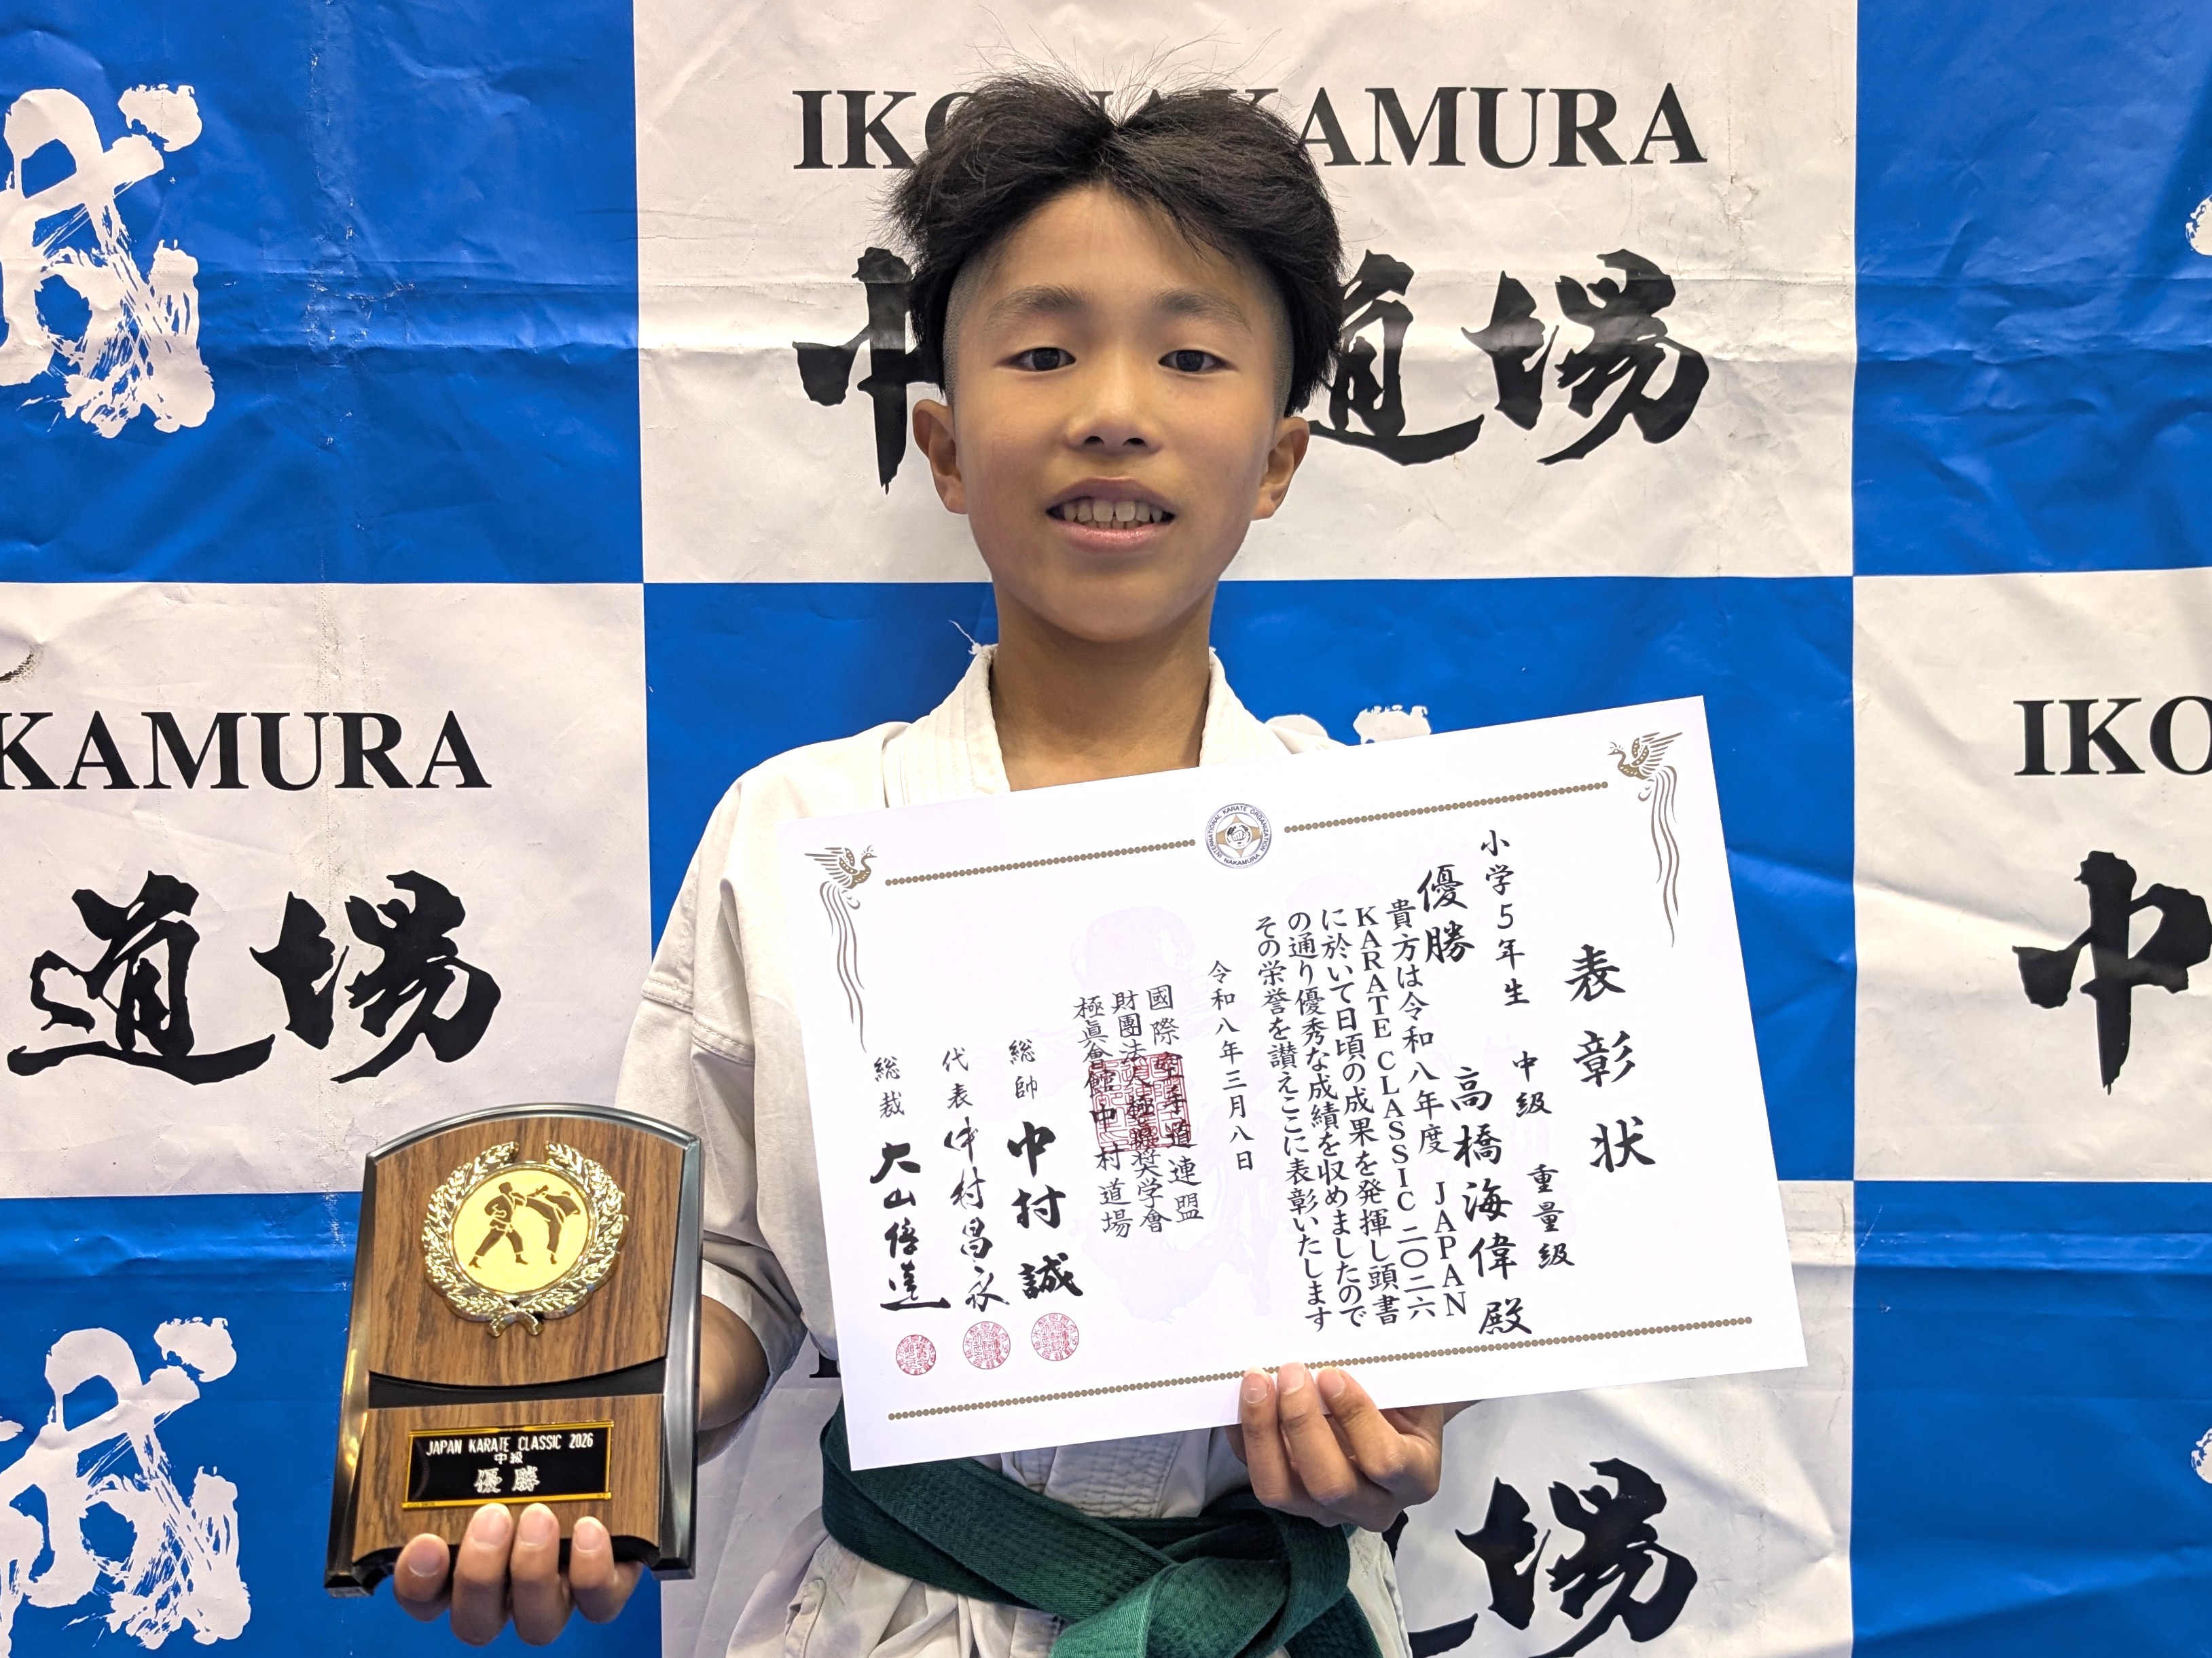 IKO NAKAMURA
道場
KAMURA
道場
IKO
中
道場
INTERNATIONAL KARATE ORGANIZATION
NAKAMURA
表彰状
小学5年生 中級 重量級
優勝 高橋海偉殿
貴方は令和八年度 JAPAN
KARATE CLASSIC 二〇二六
に於いて日頃の成果を発揮し頭書
の通り優秀な成績を収めましたので
その栄誉を讃えここに表彰いたします
令和八年三月八日
國際空手道連盟
財團法人極真奨学會
極眞會館中村道場
総帥 中村誠
代表 中村昌永
総裁 大山倍達
JAPAN KARATE CLASSIC 2026
中級
優勝